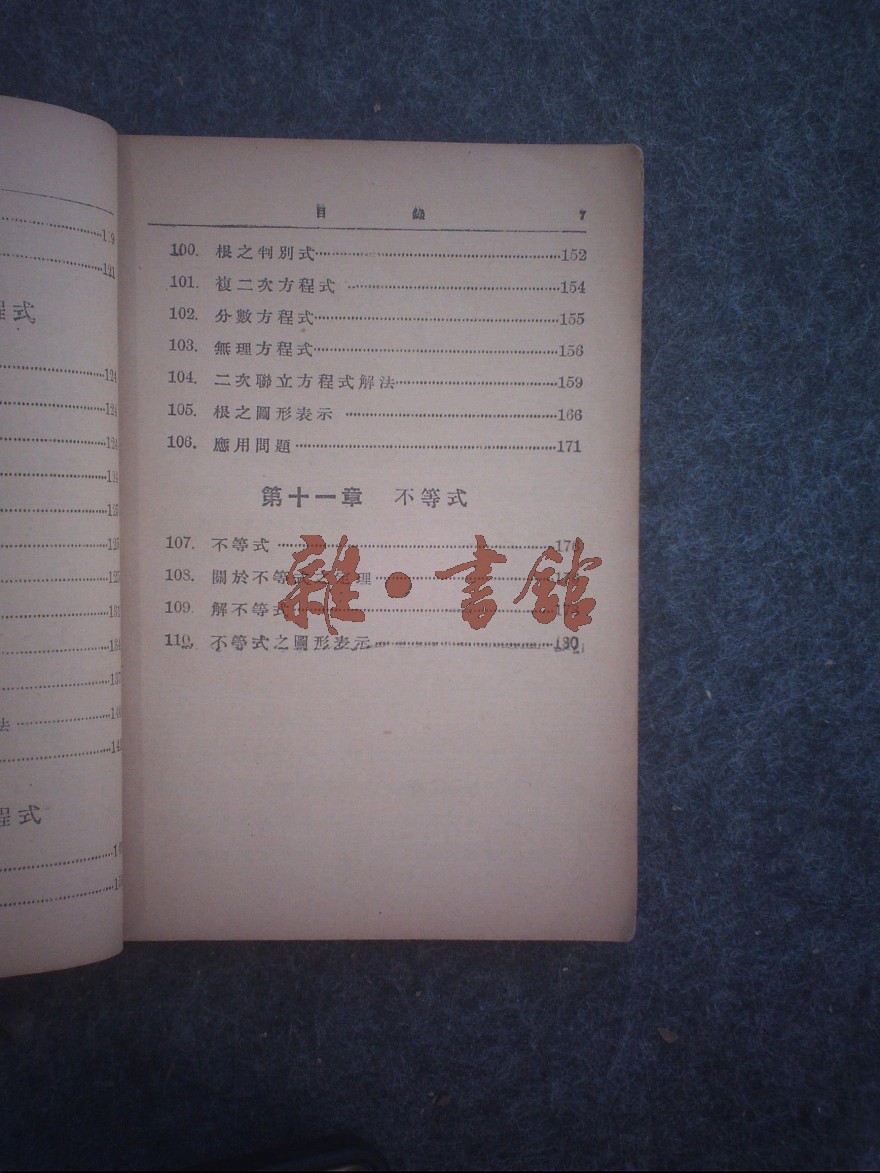 119
121
程式
124
124
124
124
125
125
127
131
134
137
法
程式
目 錄 7
100. 根之判別式 152
101. 複二次方程式 154
102. 分數方程式 155
103. 無理方程式 156
104. 二次聯立方程式解法 159
105. 根之圖形表示 166
106. 應用問題 171
第十一章 不等式
107. 不等式 176
108. 關於不等式之定理
109. 解不等式
110. 不等式之圖形表示 180
雜·書館